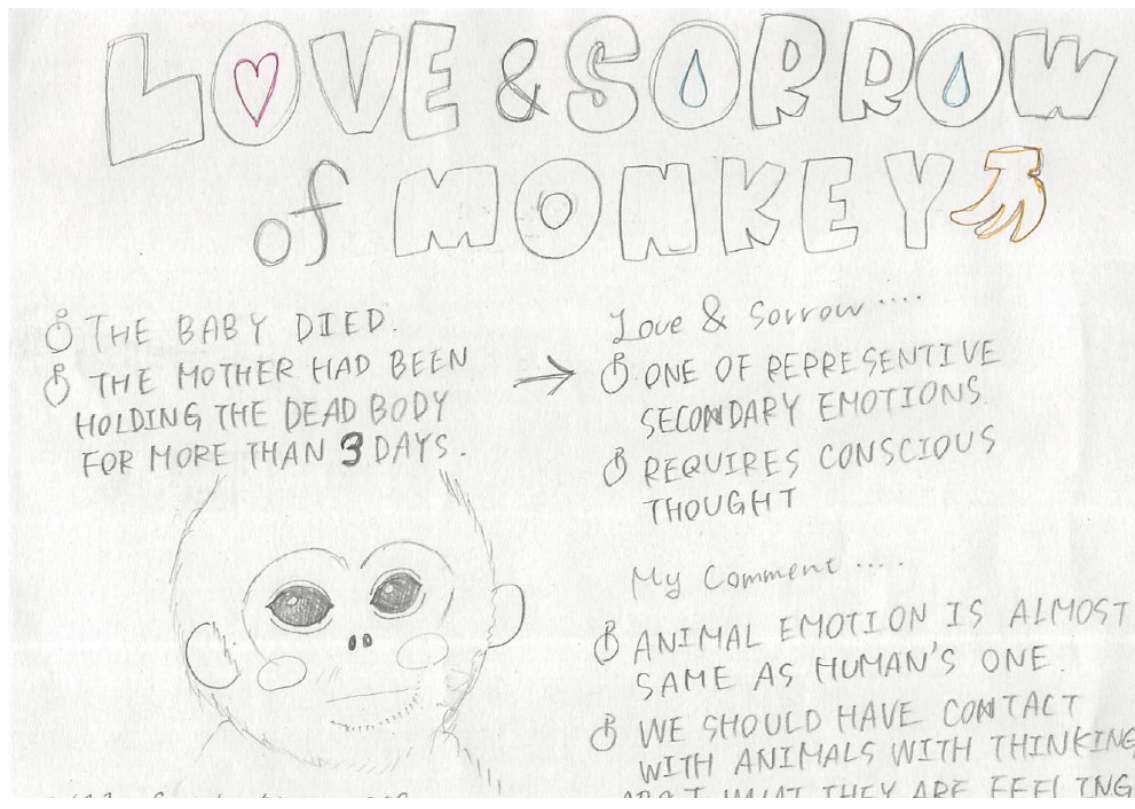 LOVE & SORROW
of MONKEY
THE BABY DIED.
THE MOTHER HAD BEEN
HOLDING THE DEAD BODY
FOR MORE THAN 3 DAYS.
Love & Sorrow....
ONE OF REPRESENTIVE
SECONDARY EMOTIONS.
REQUIRES CONSCIOUS
THOUGHT
My Comment.....
ANIMAL EMOTION IS ALMOST
SAME AS HUMAN'S ONE.
WE SHOULD HAVE CONTACT
WITH ANIMALS WITH THINKING
ABOUT WHAT THEY ARE FEELING